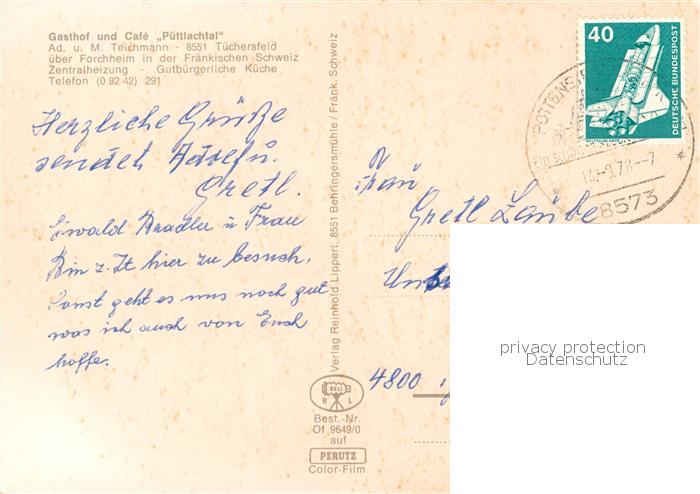 Gasthof und Café „Püttlachtal"
Ad. u. M. Teichmann · 8551 Tüchersfeld
über Forchheim in der Fränkischen Schweiz
Zentralheizung · Gutbürgerliche Küche
Telefon (0 92 42) 291
Herzliche Grüße
sendet Adolf u.
Gretl.
Ewald Bradler u Frau
Bin z. Zt hier zu besuch,
Sonst geht es uns noch gut
was ich auch von Euch
hoffe.
Verlag Reinhold Lippert, 8551 Behringersmühle / Fränk. Schweiz
RELI
R L
Best.-Nr.
Of 9649/0
auf
PERUTZ
Color-Film
40
DEUTSCHE BUNDESPOST
POTTENS
-9.78-7
8573
Frau
Gretl Laube
4800
privacy protection
Datenschutz